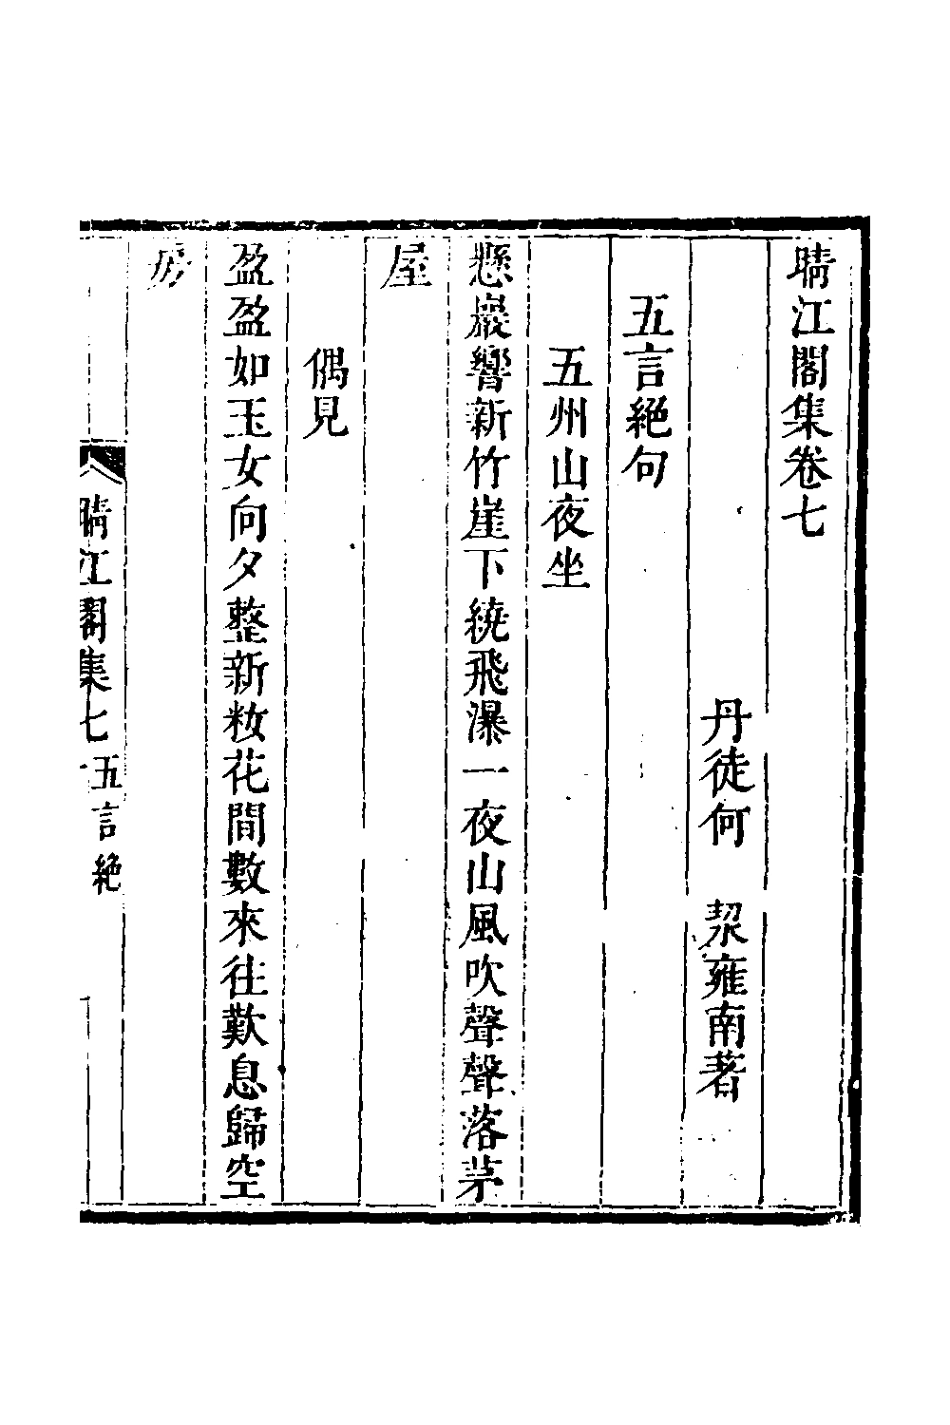 晴江閣集卷七
丹徒何　洯雍南著
五言絶句
五州山夜坐
懸巖響新竹崖下繞飛瀑一夜山風吹聲聲落茅
屋
偶見
盈盈如玉女向夕整新籹花間數來往歎息歸空
房
晴江閣集七 五言絶